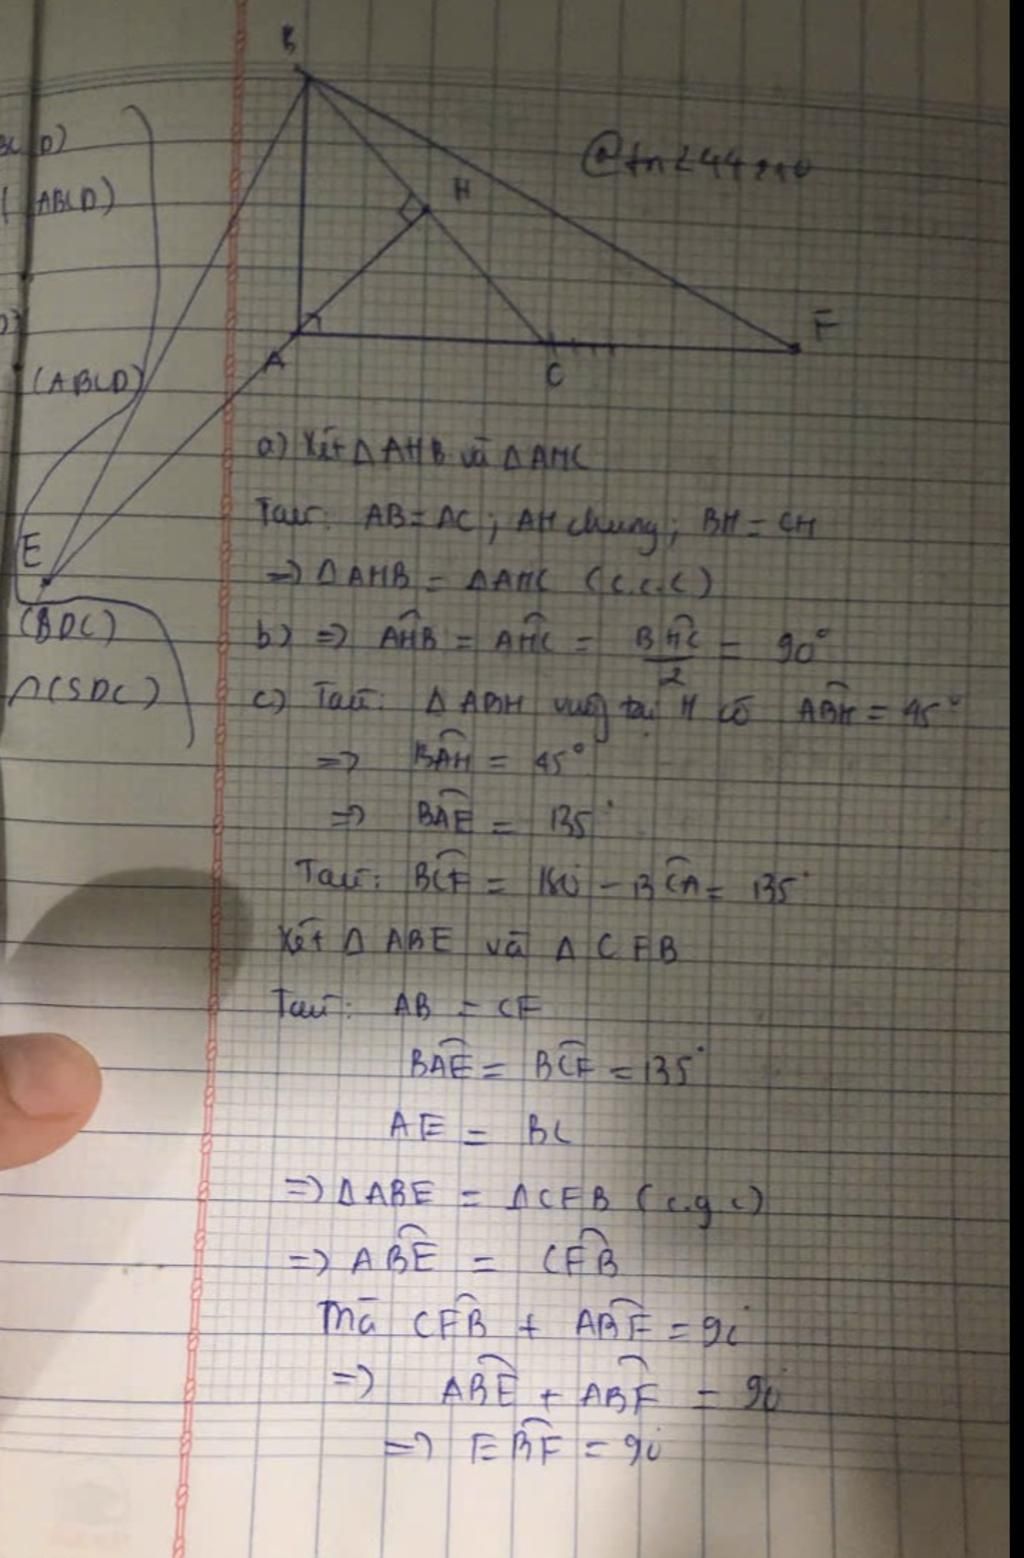 B
H
@tn244210
BCD)
(ABCD)
F
A
C
(ABCD)
a) Xét ΔAHB và ΔAHC
Ta có: AB = AC ; AH chung ; BH = CH
E
=> ΔAHB = ΔAHC (c.c.c)
(BDC)
b) => AĤB = AĤC = BĤC/2 = 90°
∩(SDC)
c) Ta có: ΔABH vuông tại H có AB̂H = 45°
=> BÂH = 45°
=> BÂE = 135°
Ta có: BĈF = 180° - BĈA = 135°
Xét ΔABE và ΔCFB
Ta có: AB = CF
BÂE = BĈF = 135°
AE = BC
=> ΔABE = ΔCFB (c.g.c)
=> AB̂E = CF̂B
Mà CF̂B + AB̂F = 90°
=> AB̂E + AB̂F = 90°
=> EB̂F = 90°